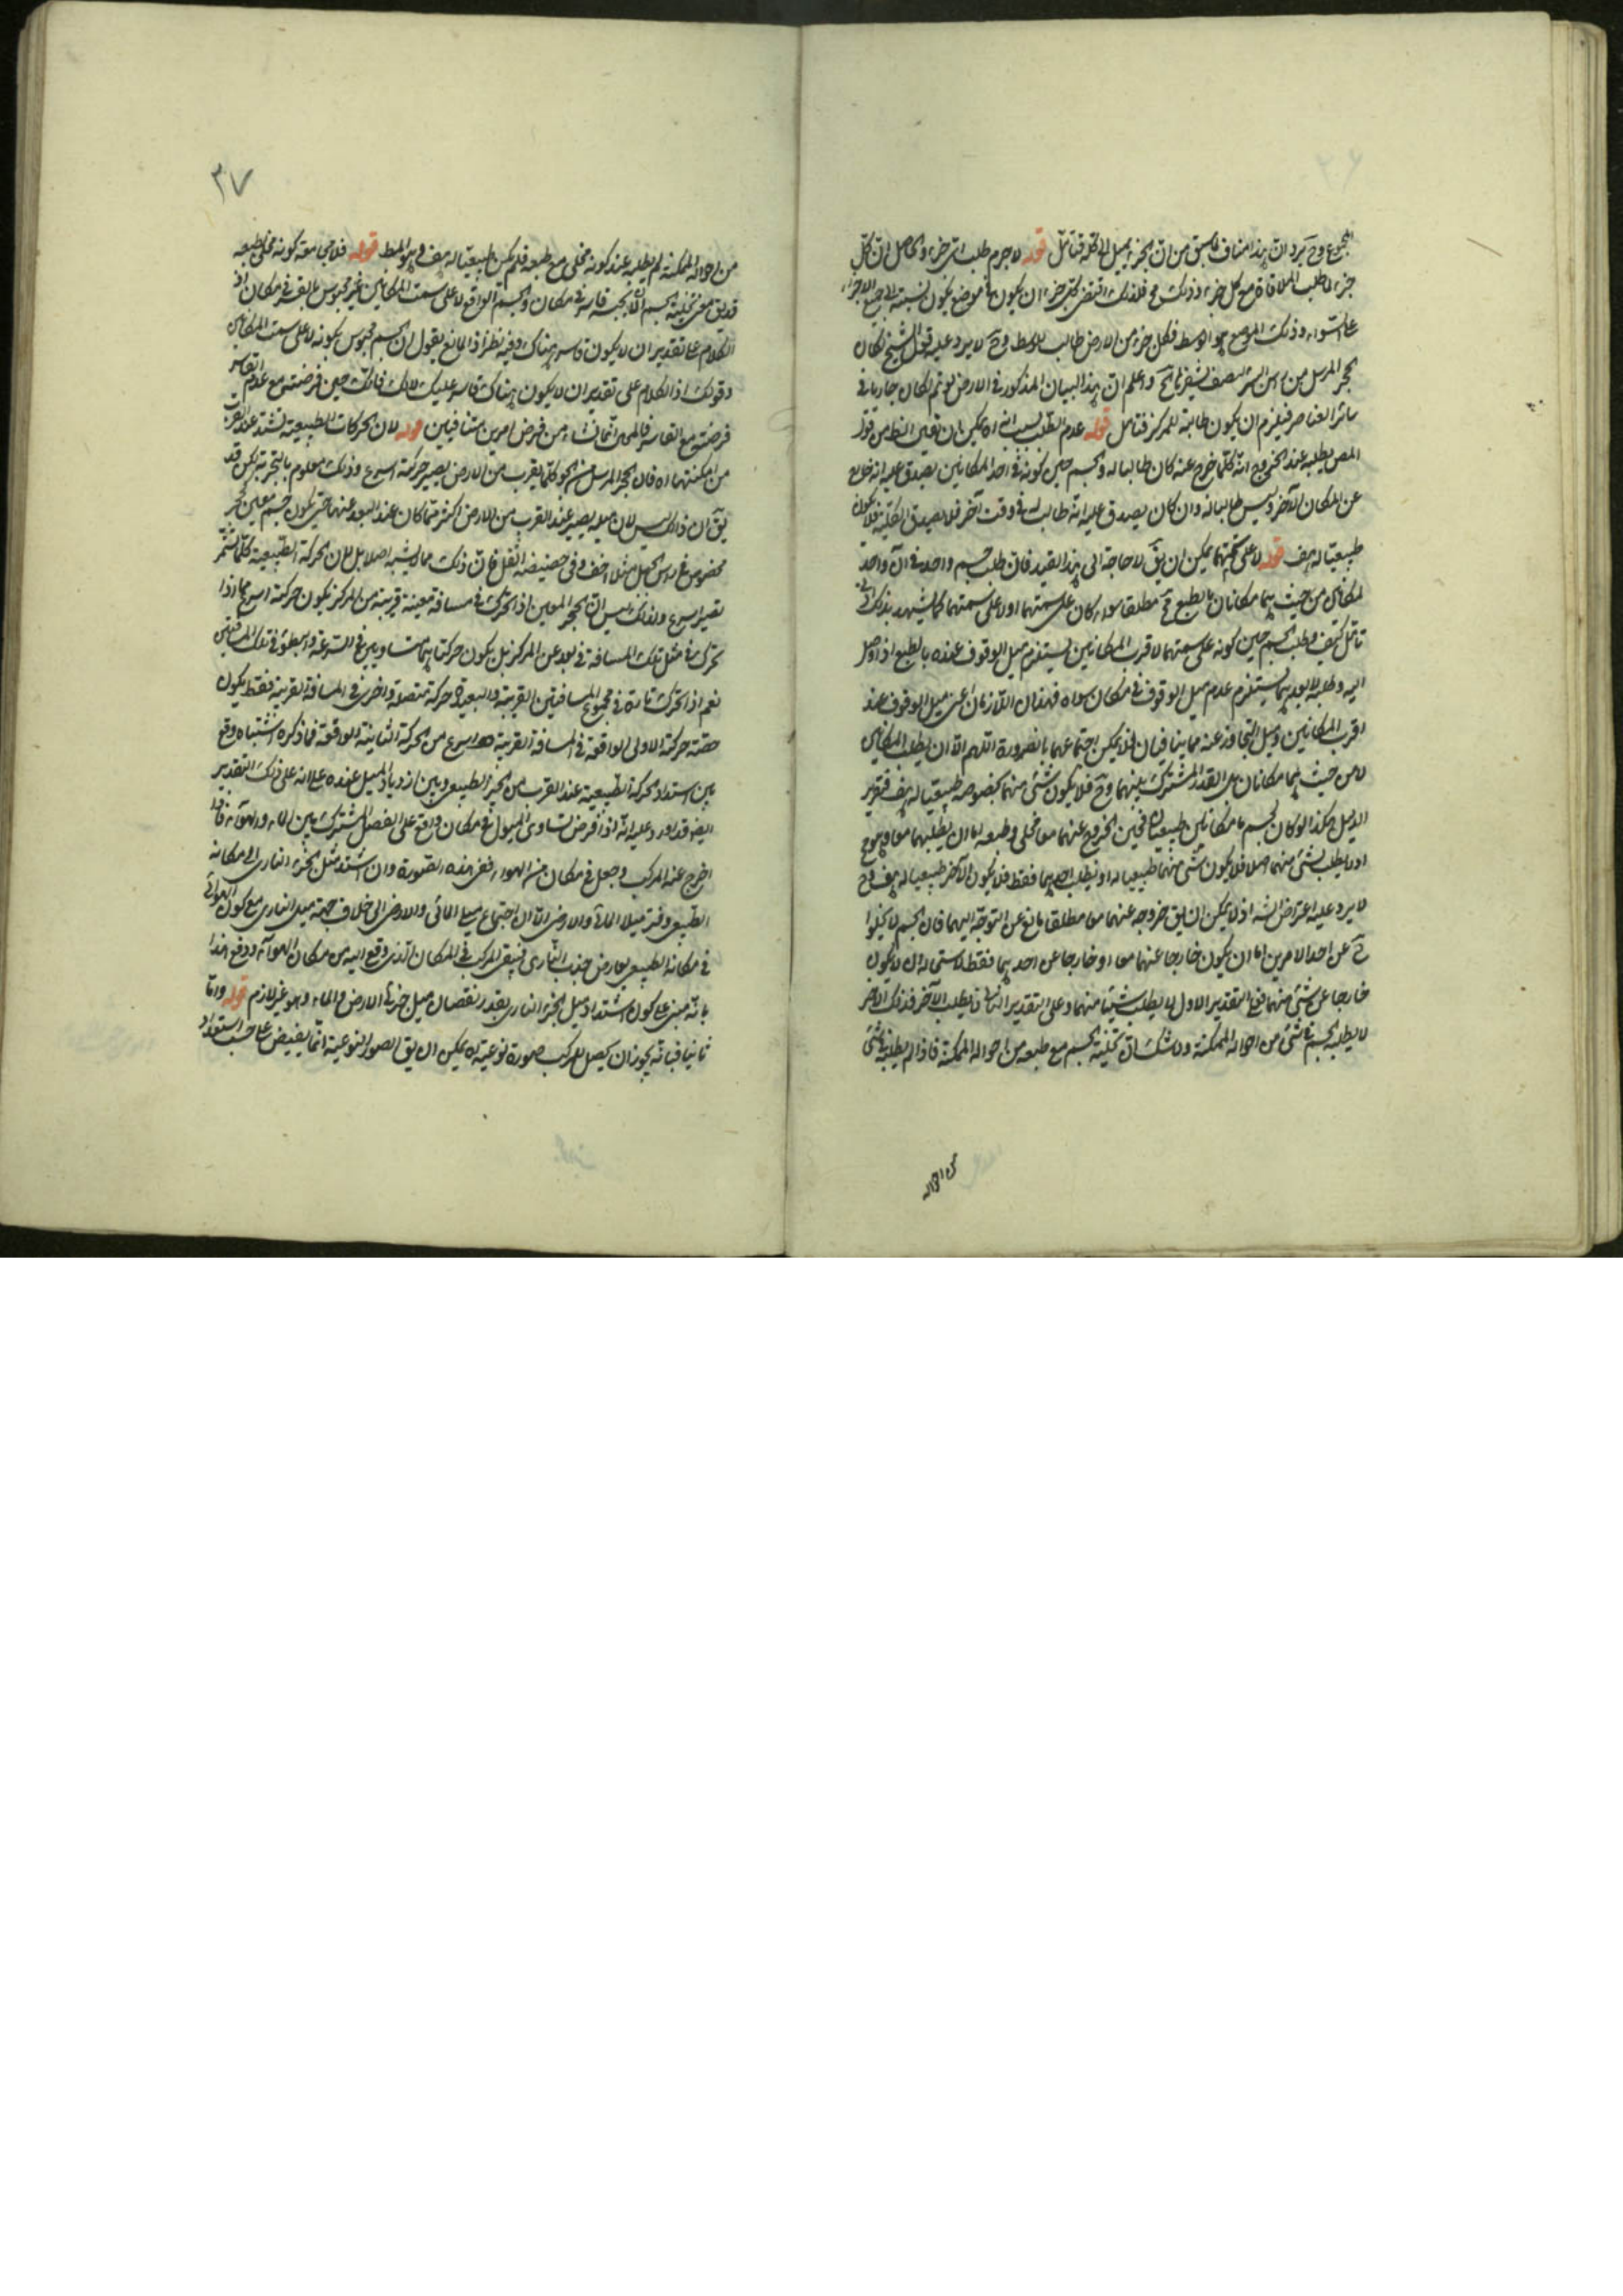 المجموع وح يرد ان هذا مناف لما سبق من ان الجزء يميل الى كله فتأمل قوله لا جرم طلب اى جزء والحاصل ان كل
جزء طلب الملاقاة مع كل جزء وذلك فلذلك اقتضى كل جزء ان يكون فى موضع يكون نسبته الى جميع الاجزاء
على السواء وذلك الموضع هو الوسط فكل جزء من الارض طالب للوسط وح لا يرد عليه قول الشيخ لكان
الحجر المرسل من رأس البئر يلتصق بشفيرها آه واعلم ان هذا البيان المذكور فى الارض لو تم لكان جاريا فى
سائر العناصر فيلزم ان يكون طالبة للمركز فتأمل قوله عدم الطلب بسبب انه آه يمكن بان يقال الظاهر من قول
المص يطلبه عند الخروج انه كلما خرج عنه كان طالبا له والجسم حين كونه فى احد المكانين يصدق عليه انه خارج
عن المكان الآخر وليس طالبا له وان كان يصدق عليه انه طالب له فى وقت آخر فلا يصدق الكلية فلا يكون
طبيعيا له هف قوله لا على سمتهما يمكن ان يق لا حاجة الى هذا القيد فان طلب جسم واحد فى آن واحد
لمكانين من حيث هما مكانان بالطبع مح مطلقا سواء كان على سمتهما او لا على سمتهما كما يشهد بذلك
تأمل كيف وطلب الجسم حين كونه على سمتهما لاقرب المكانين يستلزم ميل الوقوف عنده بالطبع اذا وصل
اليه وطلبه لابعدهما يستلزم عدم ميل الوقوف فى مكان سواه فهذان اللازمان اعنى ميل الوقوف عند
اقرب المكانين وميل التجاوز عنه مما يتنافيان فلا يمكن اجتماعهما بالضرورة اللهم الا ان يطلب المكانين
لا من حيث هما مكانان بل القدر المشترك بينهما وح فلا يكون شئ منهما بخصوصه طبيعيا له هف فتقرير
الدليل هكذا لو كان لجسم ما مكانان طبيعيان فحين الخروج عنهما معا مخلى وطبعه اما ان يطلبهما معا وهو مح
او لا يطلب شئ منهما اصلا فلا يكون شئ منهما طبيعيا له او يطلب احدهما فقط فلا يكون الآخر طبيعيا له هف وح
لا يرد عليه اعتراض الشه اذ لا يمكن ان يق خروجه عنهما معا مطلقا مانع عن التوجه اليهما فان الجسم لا يخلوا
ح عن احد الامرين اما ان يكون خارجا عنهما معا او خارجا عن احدهما فقط لاستحالة ان لا يكون
خارجا عن شئ منهما فعلى التقدير الاول لما يطلب شيئا منهما وعلى التقدير الثانى لا يطلب الآخر فذلك الآخر
لا يطلبه الجسم فى شئ من احواله الممكنة ولا شك ان تخلية الجسم مع طبعه من احواله الممكنة فاذا لم يطلبه فى شئ
من احواله
٣٧
من احواله الممكنة لم يطلبه عند كونه مخلى مع طبعه فلم يكن طبيعيا له هف وهو المط قوله فلا يجامعه كونه مخلى بطبعه
قد يق معنى تخلية الجسم ان لا يحبسه قاسر فى مكان والجسم الواقع لا على سمت المكانين غير محبوس بالقسر فى مكان اذ
الكلام على تقدير ان لا يكون قاسر هناك وفيه نظر اذ المانع يقول ان الجسم محبوس بكونه لا على سمت المكانين
وقولك اذ الكلام على تقدير ان لا يكون هناك قاسر عليك لا لك فانك حين فرضته مع عدم القاسر
فرضته مع القاسر فالمح انما نشاء من فرض امرين متنافيين قوله لان الحركات الطبيعية تشتد عند القرب
من امكنتها آه فان الحجر المرسل من الجو كلما يقرب من الارض يصير حركته اسرع وذلك معلوم بالتجربة لكن قد
يق ان ذلك ليس لان ميله يصير عند القرب من الارض اكثر مما كان عند البعد عنها حتى يكون جسم معين كحجر
مخصوص فى رأس الجبل مثلا اخف وفى حضيضه اثقل فان ذلك مما لم يشبه اصلا بل لان الحركة الطبيعية كلما تستمر
تصير اسرع ولذلك ليس ان الحجر المعين اذا تحرك فى مسافة معينة قريبة من المركز يكون حركته اسرع مما اذا
تحرك فى مثل تلك المسافة فى بعد عن المركز بل يكون حركتاهما متساويين فى السرعة والبطؤ فى تلك المسافتين
نعم اذا تحرك تارة فى مجموع المسافتين القريبة والبعيدة حركة متصلة واخرى فى المسافة القريبة فقط يكون
حصة حركته الاولى الواقعة فى المسافة القريبة اسرع من الحركة الثانية الواقعة فما ذكره اشتباه وقع
بين اشتداد الحركة الطبيعية عند القرب من الحيز الطبيعى وبين ازدياد الميل عنده على انه على ذلك التقدير
ايضا قد اورد عليه انه اذا فرض تساوى الميول فى مكان واقع على الفصل المشترك بين الماء والهواء فاذا
اخرج عنه المركب وجعل فى مكان من الهواء ففى هذه الصورة وان اشتد ميل الجزء النارى الى مكانه
الطبيعى وفتر ميلا المائى والارضى الا ان اجتماع ميلى المائى والارضى الى خلاف جهة ميل النارى مع كون الهوائى
فى مكانه الطبيعى يعارض جذب النارى فيبقى المركب فى المكان الذى وقع اليه من مكان الهواء ودفع هذا
بانه مبنى على كون اشتداد ميل الجزء النارى بقدر نقصان ميل جزئى الارض والماء وهو غير لازم قوله واما
ثانيا فبانه يجوز ان يحصل للمركب صورة نوعية آه يمكن ان يق الصور النوعية انما يفيض على حسب استعداد